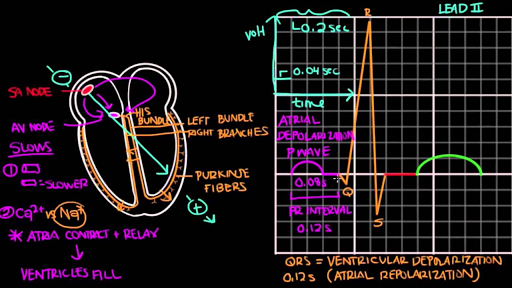 LEAD II
R
volt
0.2sec
0.04sec
time
SA NODE
AV NODE
HIS
BUNDLE
LEFT BUNDLE
RIGHT BRANCHES
PURKINJE
FIBERS
SLOWS
①
=SLOWER
② Ca²⁺ vs Na⁺
* ATRIA CONTRACT + RELAX
VENTRICLES FILL
ATRIAL
DEPOLARIZATION
P WAVE
0.08s
PR INTERVAL
0.12s
Q
S
QRS = VENTRICULAR DEPOLARIZATION
0.12s (ATRIAL REPOLARIZATION)